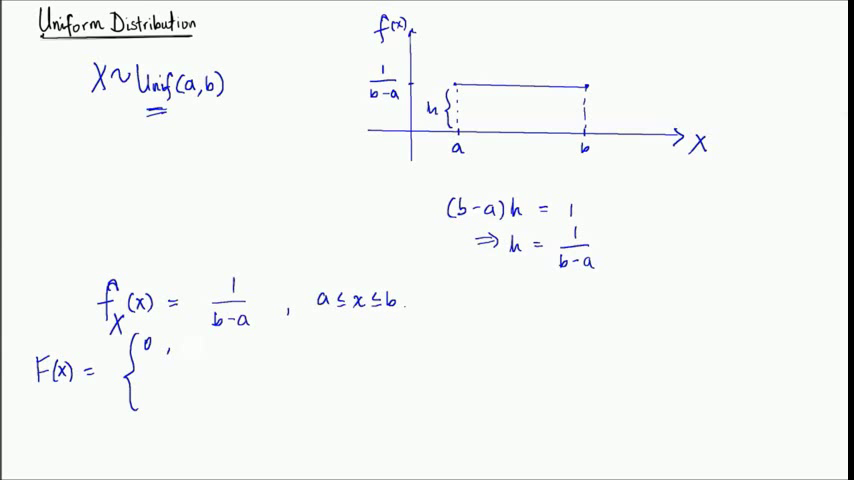 Uniform Distribution
X ~ Unif(a,b)
f(x)
1/(b-a)
h
a
b
X
(b-a)h = 1
⇒ h = 1/(b-a)
f_X(x) = 1/(b-a) , a ≤ x ≤ b.
F(x) = { 0 ,